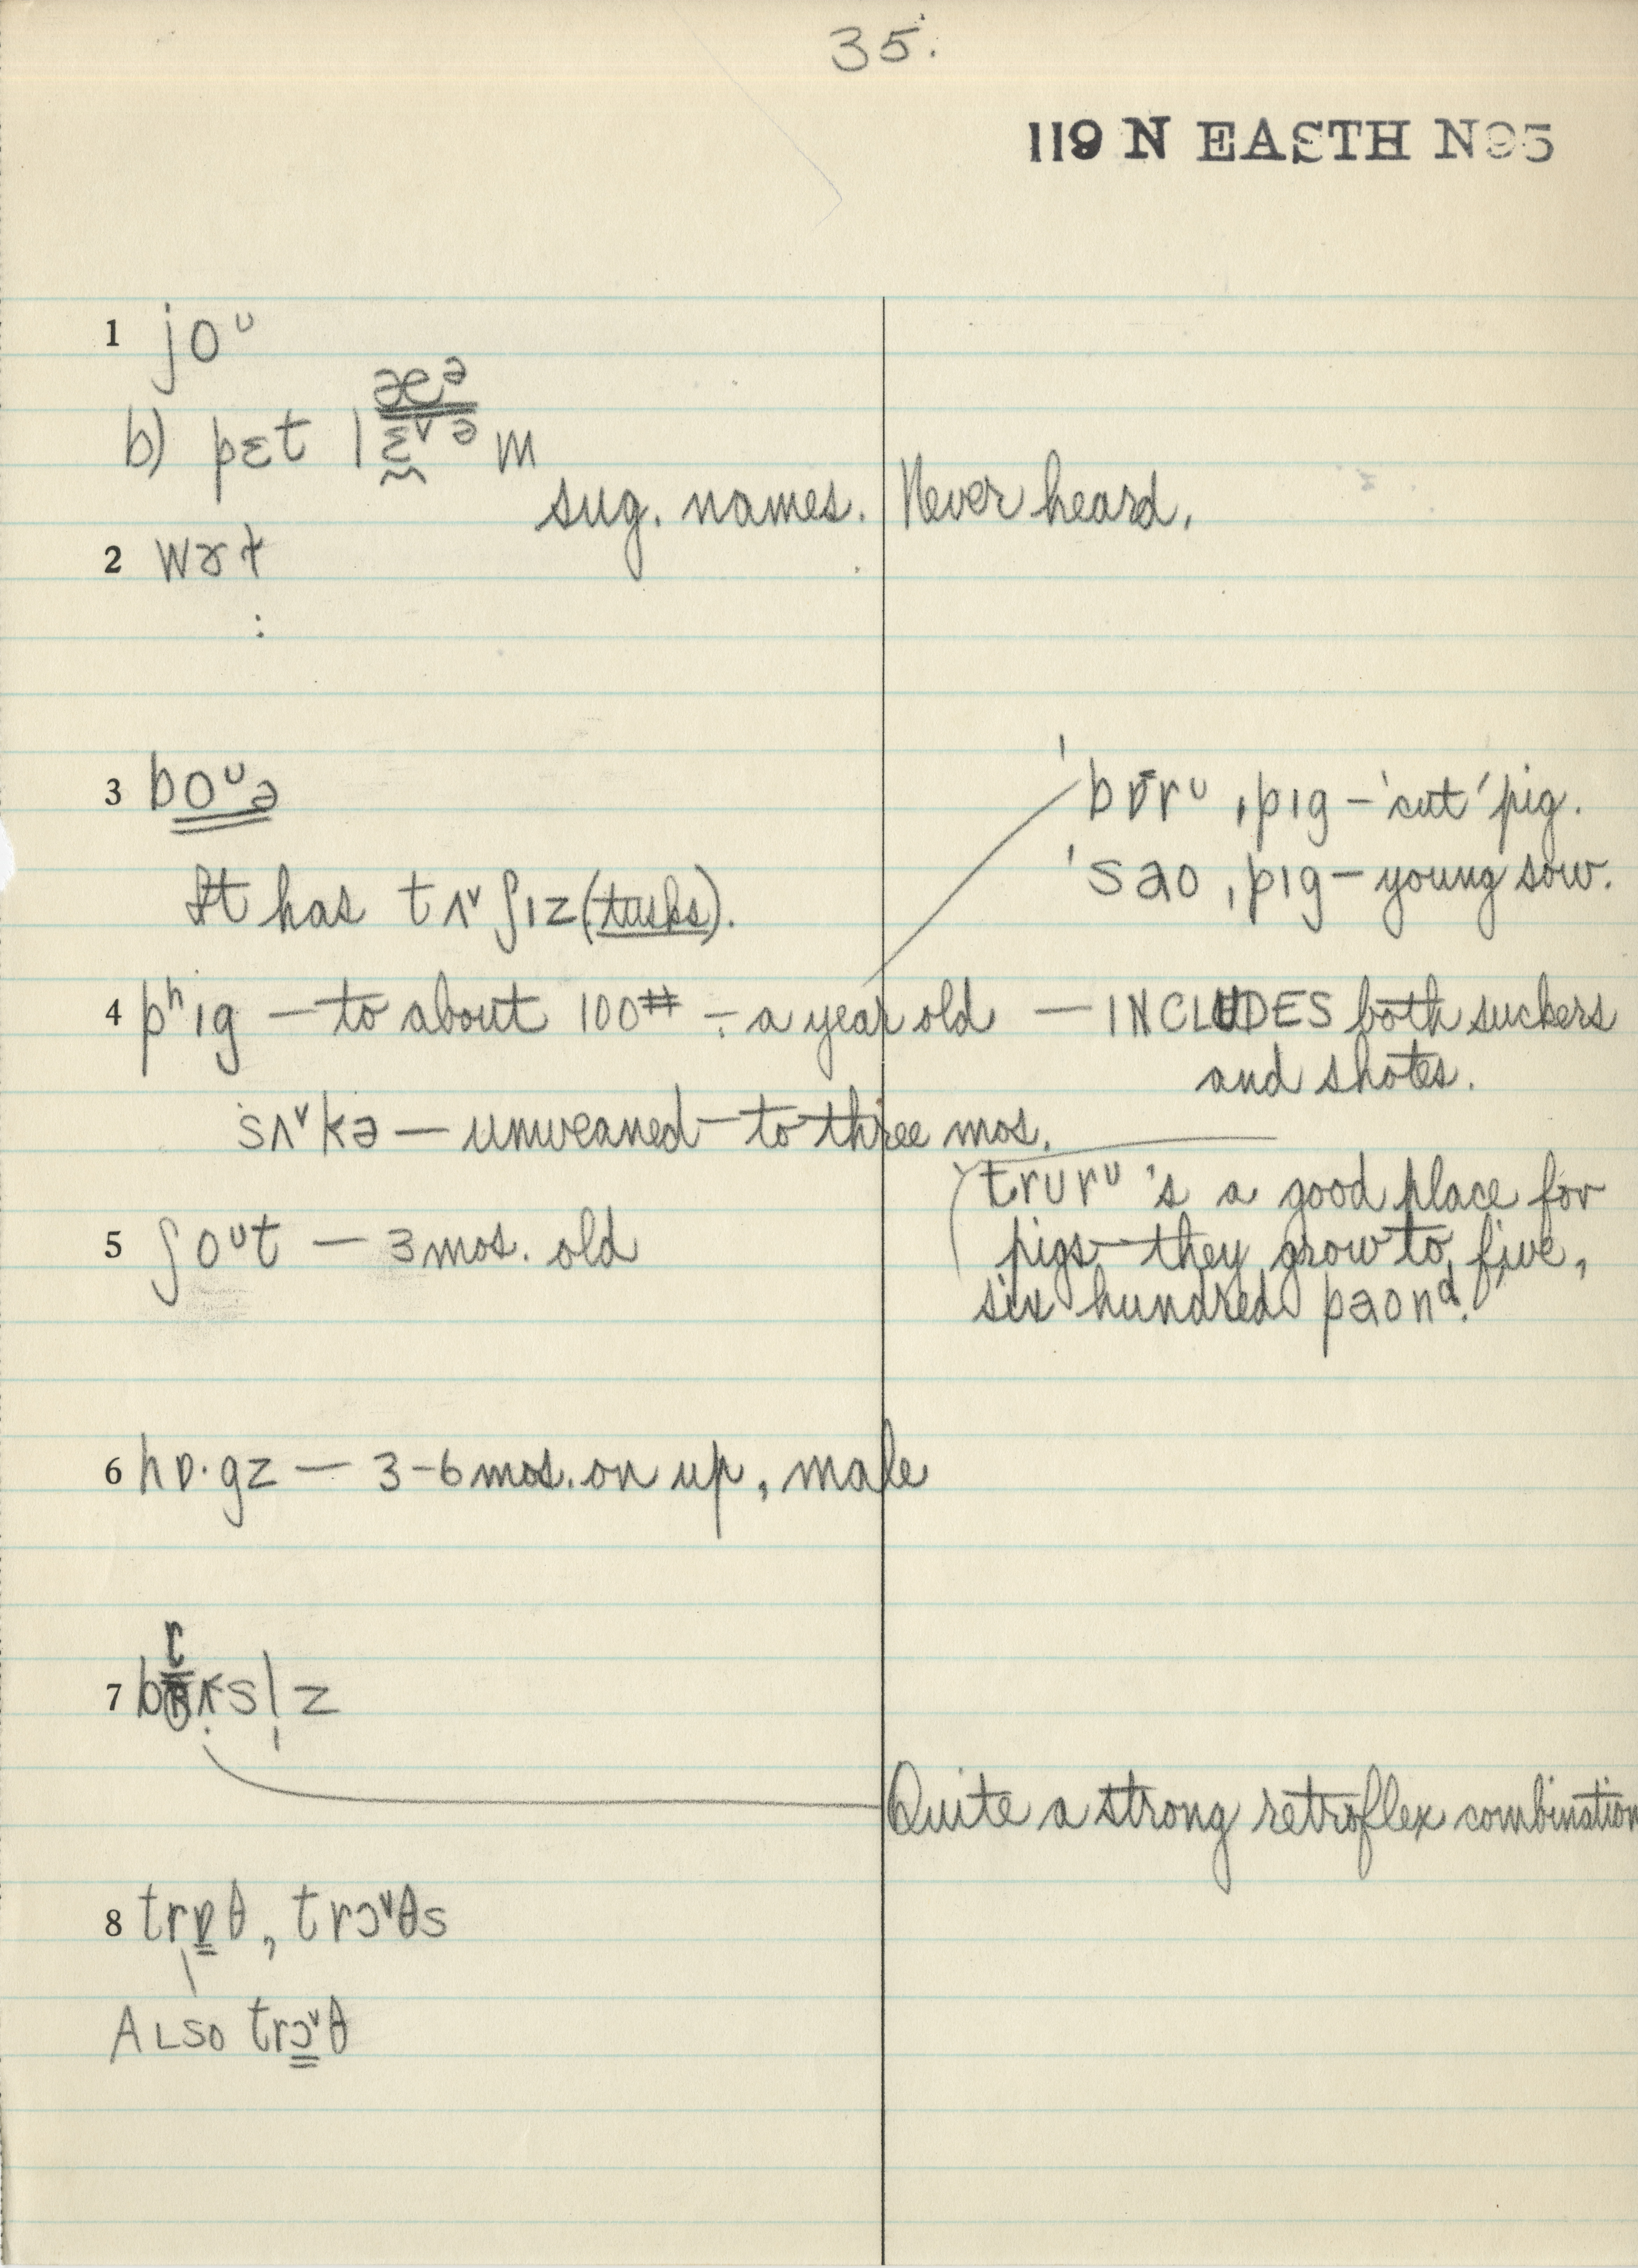 35.
119 N EASTH N95
1 joᶷ
b) pɛt l æᵊ ɛ̰ᵛᵊ m
sug. names. Never heard.
2 wɤɫ
:
3 boᶷə
'bɒ̄rᶷ ˌpɪg – 'cut' pig.
It has tʌᵛʃɪz (tusks).
'sao ˌpɪg – young sow.
4 pʰɪg – to about 100# ÷ a year old – INCLUDES both suckers
and shotes.
sʌᵛkə – unweaned – to three mos.
trurᶷ 's a good place for
5 ʃoᶷt – 3 mos. old
pigs – they grow to five,
six hundred paonᵈ."
6 hɒ·gz – 3-6 mos. on up, male
7 br ʌsl̩z
Quite a strong retroflex combination
8 trɒθ, trɔᵛθs
ALSO trɔᵛθ